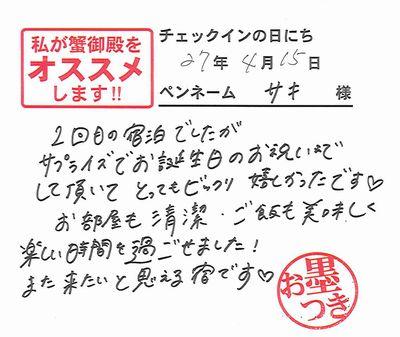 私が蟹御殿を
オススメ
します!!
チェックインの日にち
27年4月15日
ペンネーム サキ 様
2回目の宿泊でしたが
サプライズでお誕生日のお祝いまで
して頂いて とってもビックリ 嬉しかったです♡
お部屋も清潔・ご飯も美味しく
楽しい時間を過ごせました!
また来たいと思える宿です♡
お墨つき